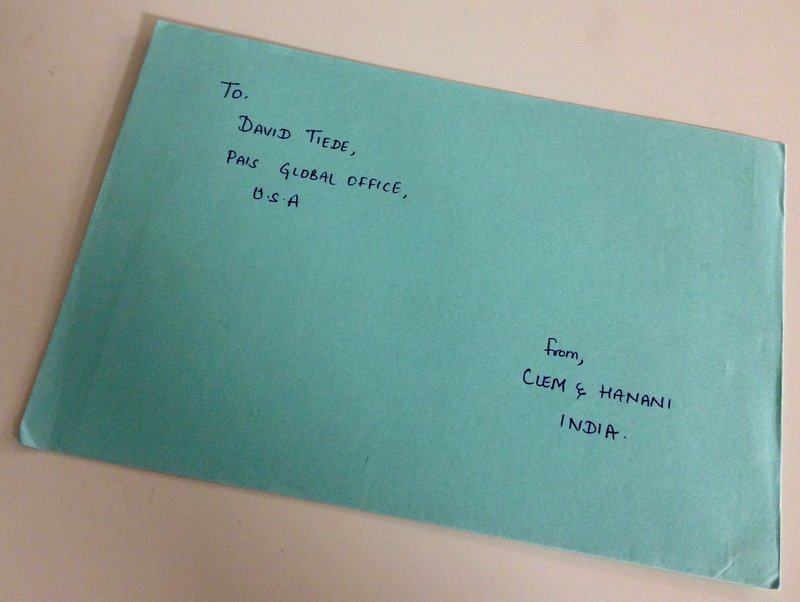 To.
DAVID TIEDE,
PAIS GLOBAL OFFICE,
U.S.A
from,
CLEM & HANANI
INDIA.